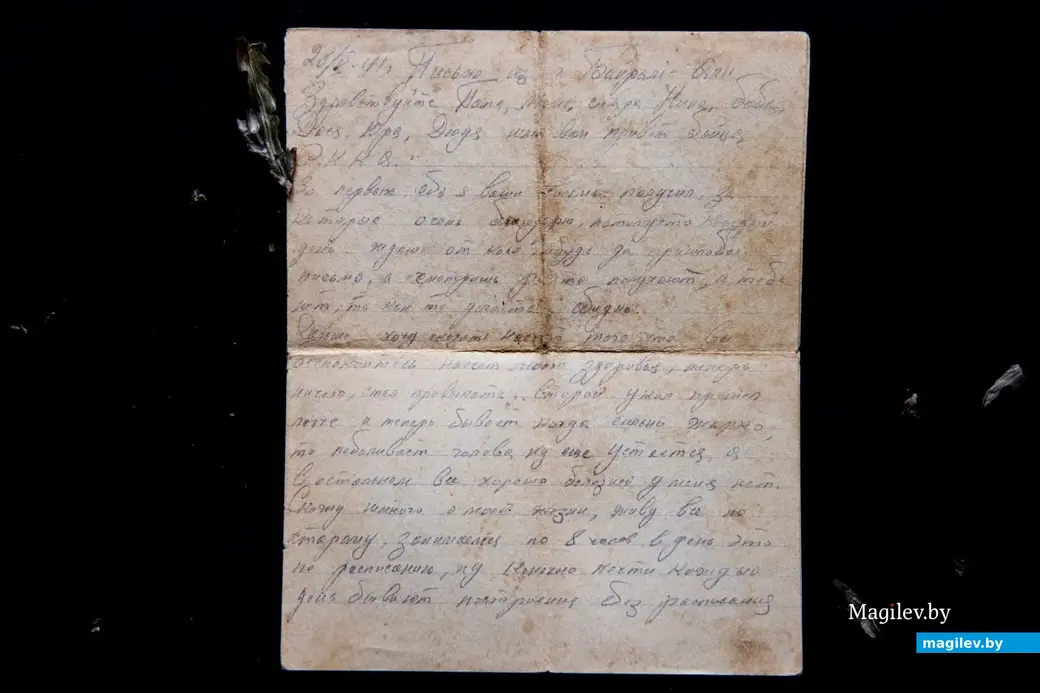 28/V-41г. Письмо из г.
Здравствуйте Папа, Мама, стара Нина, баба,
Дося, Юра, Дюдя шлю вам привет бойца
Р.К.К.А.
Во первых оба я ваши письма получил, за
которые очень благодарю, потому что каждый
день ждеш от кого нибудь да
письмо, а смотришь кто получают, а тебе
нет, то как то делается обидно.
Дальше хочу сказать насчет того что Вы
беспокоитесь насчет моего здоровья, теперь
ничего, стал провыкать, второй укол прошел
легче и теперь бывает когда сильно жарко,
то поболивает голова, ну еще устается, а
в остальном все хорошо болезней у меня нет.
немного о моей жизни, живу все по
старому, занимаемся по 8 часов в день это
по расписанию, ну конечно почти каждый
день бывают построения без расписания
Magilev.by
magilev.by